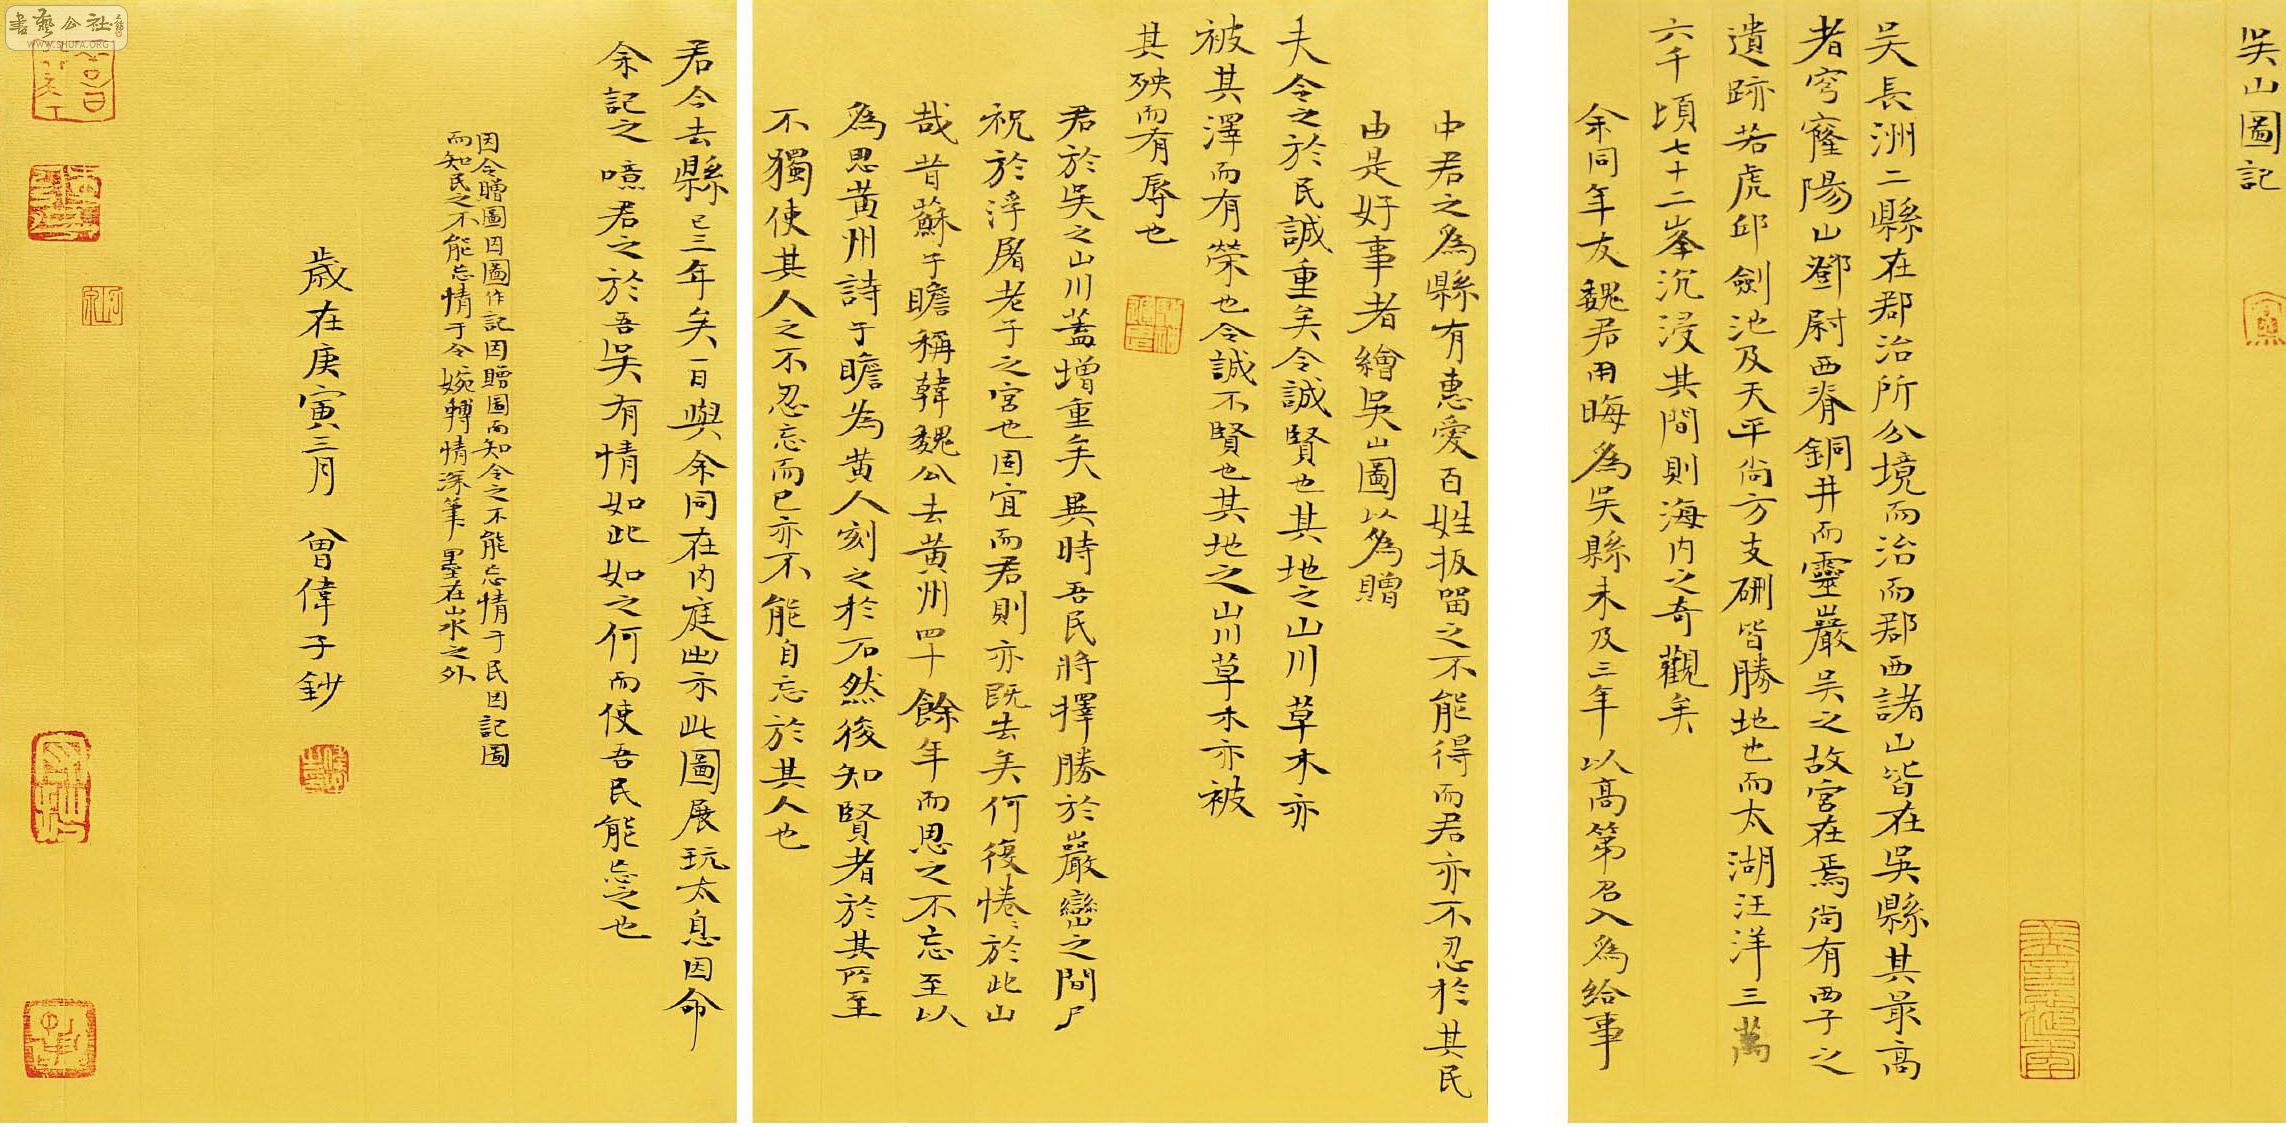 吳山圖記
吳長洲二縣在郡治所分境而治而郡西諸山皆在吳縣其最高
者穹窿陽山鄧尉西脊銅井而靈巖吳之故宮在焉尚有西子之
遺跡若虎邱劍池及天平尚方支硎皆勝地也而太湖汪洋三萬
六千頃七十二峯沉浸其間則海內之奇觀矣
余同年友魏君用晦為吳縣未及三年以高第召入為給事
中君之為縣有惠愛百姓扳留之不能得而君亦不忍於其民
由是好事者繪吳山圖以為贈
夫令之於民誠重矣令誠賢也其地之山川草木亦
被其澤而有榮也令誠不賢也其地之山川草木亦被
其殃而有辱也
君於吳之山川蓋增重矣異時吾民將擇勝於巖巒之間尸
祝於浮屠老子之宮也固宜而君則亦既去矣何復惓〻於此山
哉昔蘇子瞻稱韓魏公去黃州四十餘年而思之不忘至以
為思黃州詩子瞻為黃人刻之於石然後知賢者於其所至
不獨使其人之不忍忘而已亦不能自忘於其人也
君今去縣已三年矣一日與余同在內庭出示此圖展玩太息因命
余記之噫君之於吾吳有情如此如之何而使吾民能忘之也
因令贈圖因圖作記因贈圖而知令之不能忘情于民因記圖
而知民之不能忘情于令婉轉情深筆墨在山水之外
歲在庚寅三月 曾偉子鈔
書藝公社
WWW.SHUFA.ORG